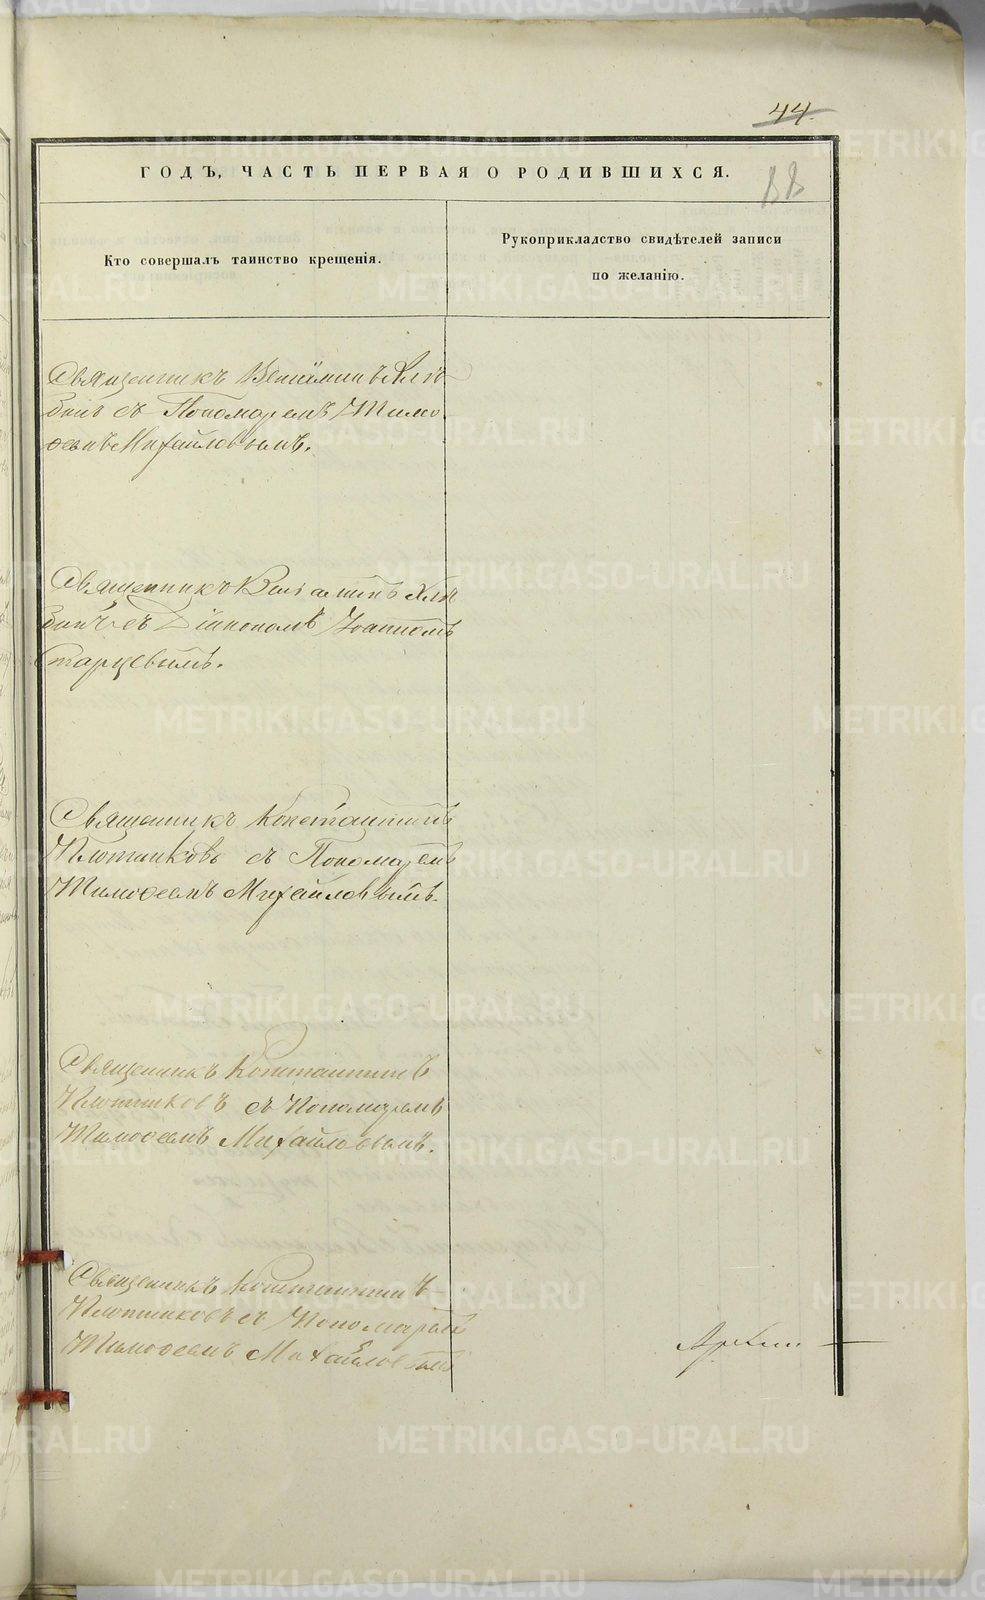 44.
ГОДЪ, ЧАСТЬ ПЕРВАЯ О РОДИВШИХСЯ.
88
Кто совершалъ таинство крещенія.
Рукоприкладство свидѣтелей записи
по желанію.
Священникъ Веніаминъ Хлѣ-
бинъ съ Пономаремъ Тимо-
ѳеемъ Михайловымъ.
Священникъ Веніаминъ Хлѣ
бинъ съ Діакономъ Іоанномъ
Старцевымъ.
Священникъ Константинъ
Плотниковъ съ Пономаремъ
Тимоѳеемъ Михайловымъ.
Священникъ Константинъ
Плотниковъ съ Пономаремъ
Тимоѳеемъ Михайловымъ.
Священникъ Константинъ
Плотниковъ съ Пономаремъ
Тимоѳеемъ Михайловымъ
METRIKI.GASO-URAL.RU